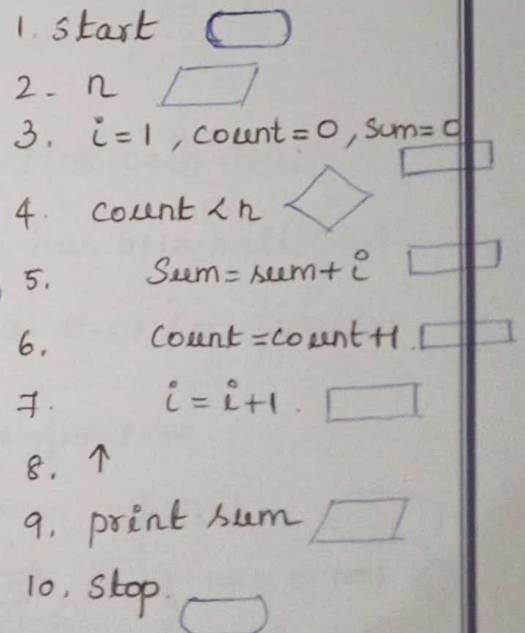 1. start
2. n
3. i=1, count=0, sum=0
4. count < n
5. Sum=sum+i
6. count=count+1.
7. i=i+1.
8. ↑
9. print sum
10. stop.